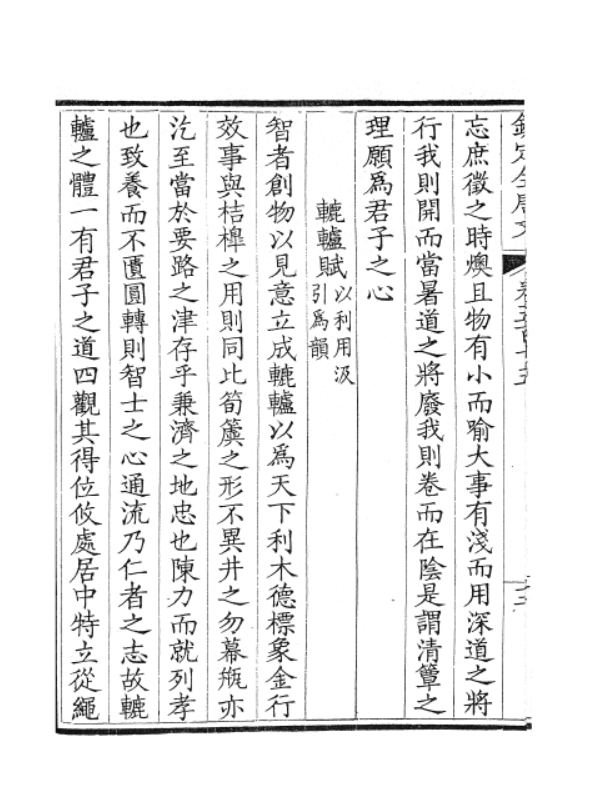 欽定全唐文
忘庶徵之時燠且物有小而喻大事有淺而用深道之將
行我則開而當暑道之將廢我則卷而在陰是謂清簟之
理願爲君子之心
轆轤賦以利用汲引爲韻
智者創物以見意立成轆轤以爲天下利木德標象金行
效事與桔槹之用則同比筍簴之形不異井之勿幕甁亦
汔至當於要路之津存乎兼濟之地忠也陳力而就列孝
也致養而不匱圓轉則智士之心通流乃仁者之志故轆
轤之體一有君子之道四觀其得位攸處居中特立從繩